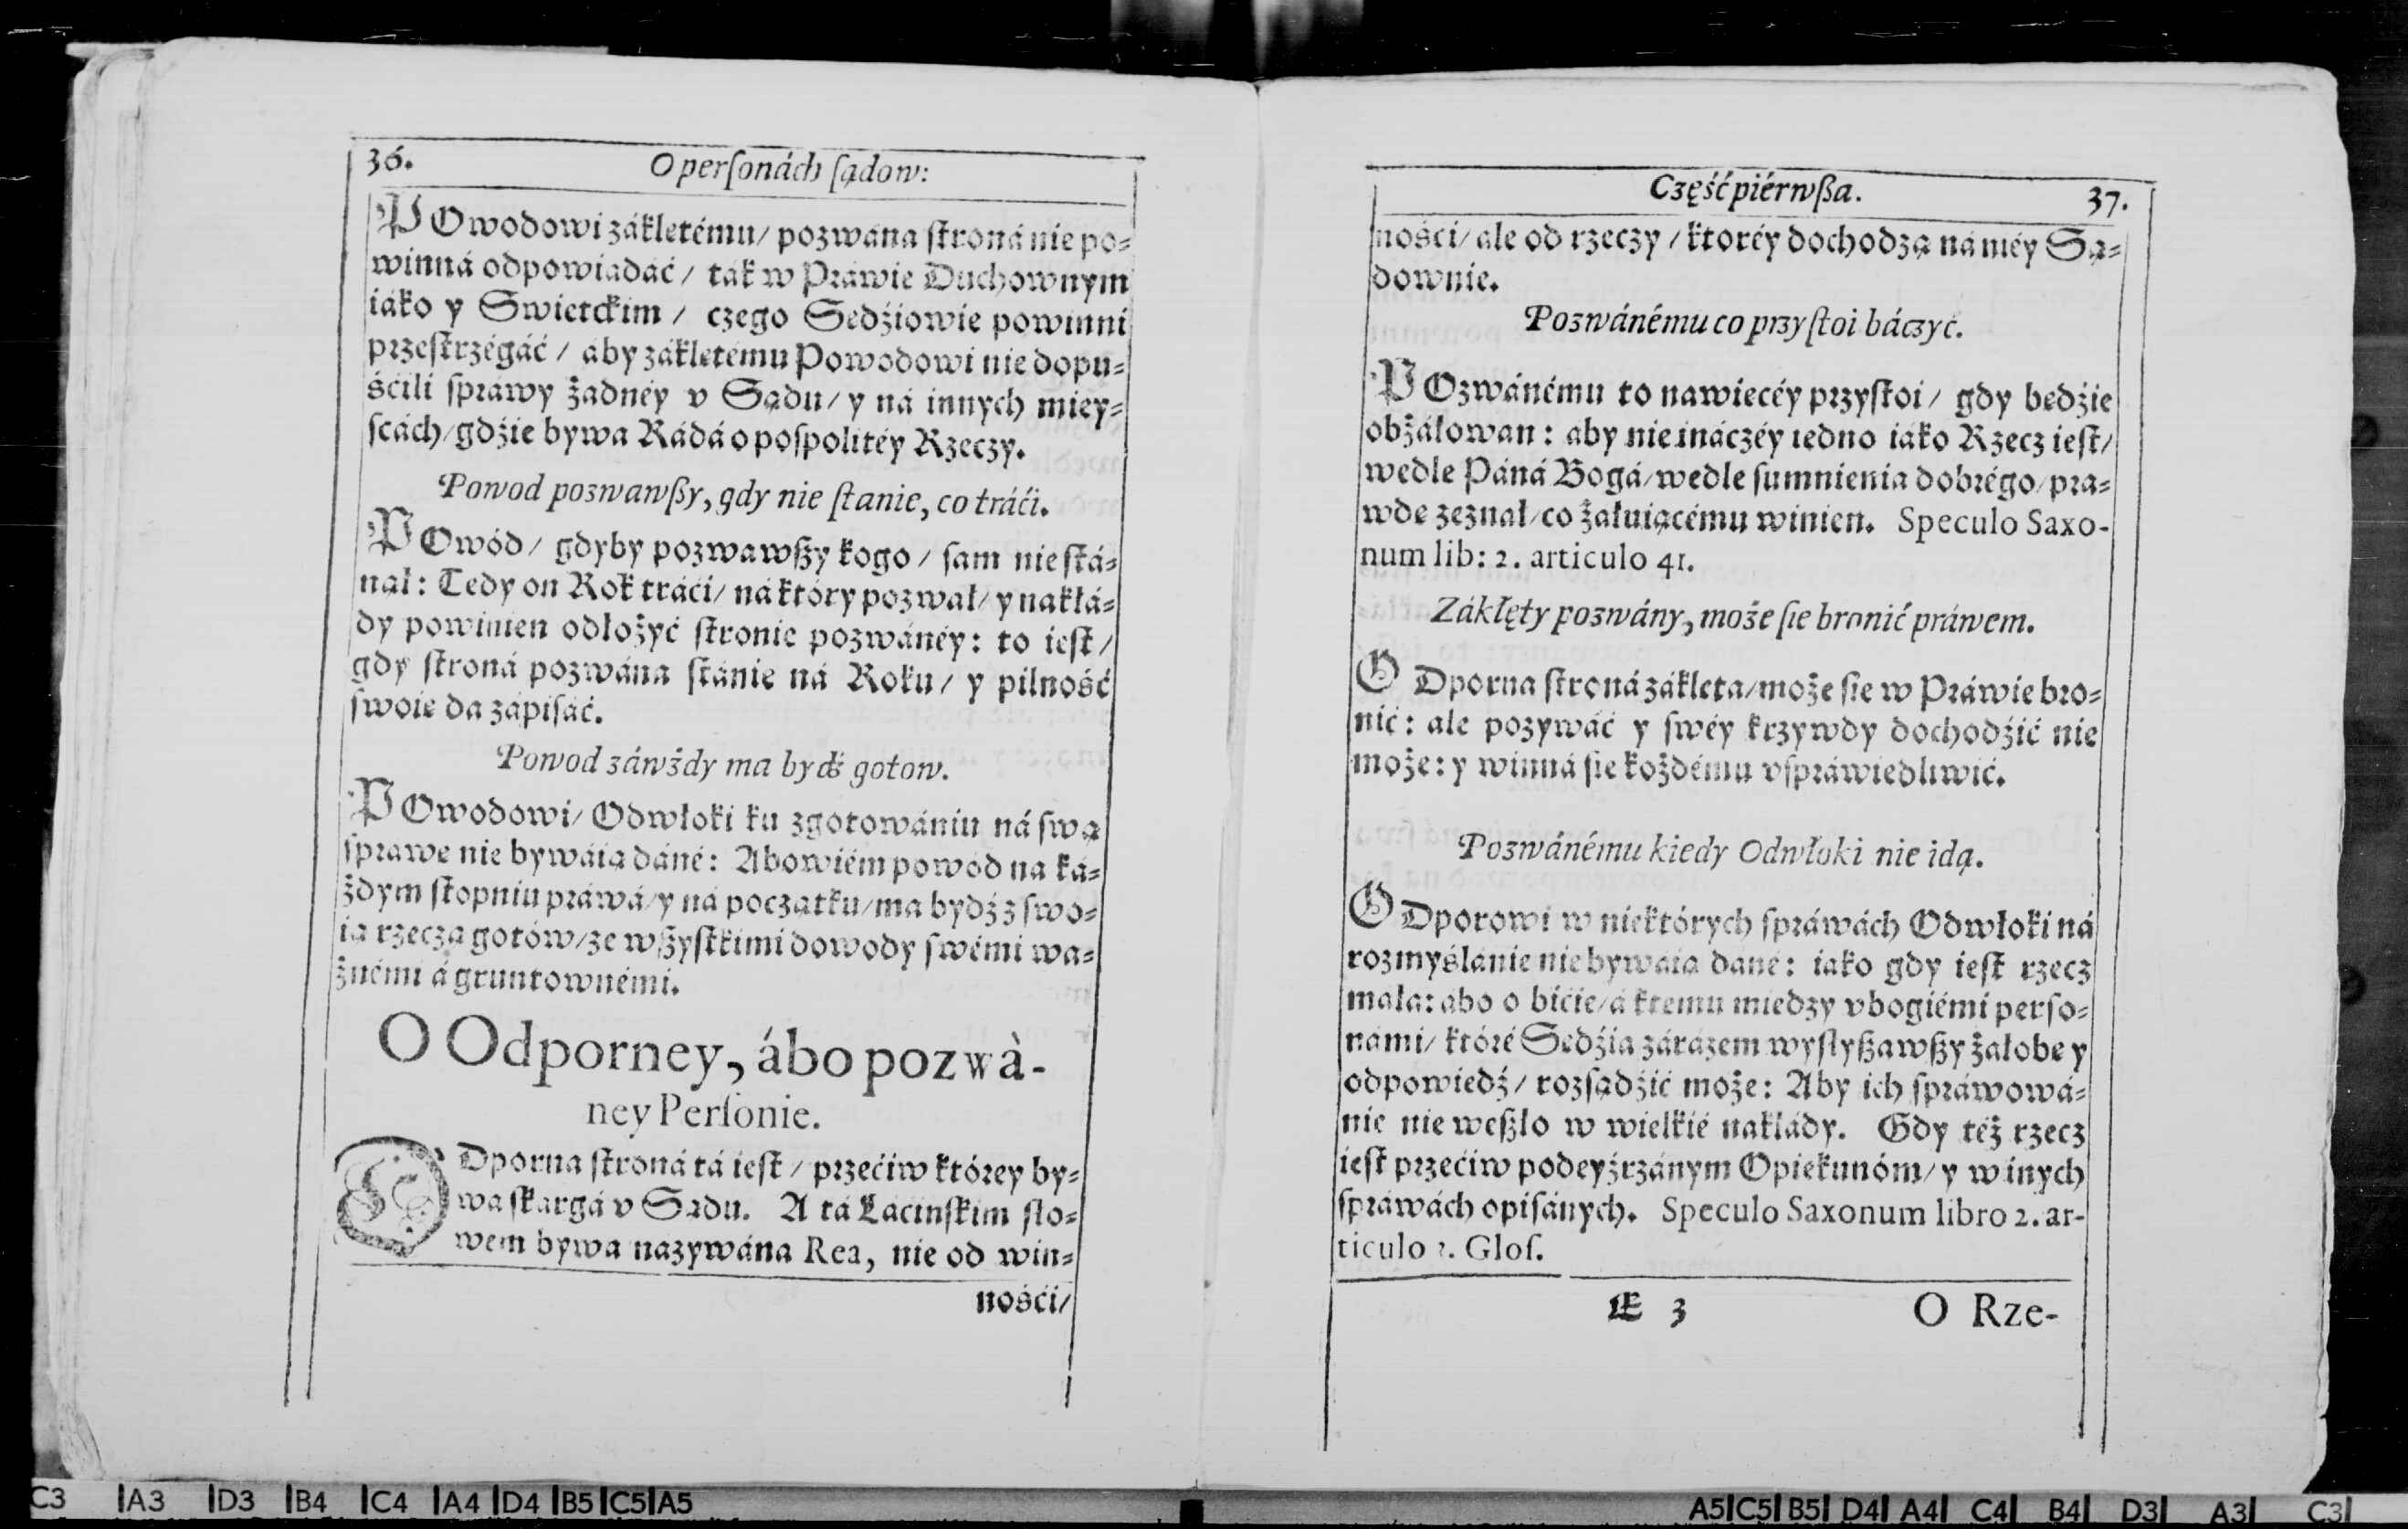 36. O perſonách ſądow:
POwodowi zákletému/ pozwána ſtroná nie po⸗
winná odpowiadáć/ ták w Práwie Duchownym
iáko y Swietckim/ czego Sedźiowie powinni
przeſtrzégáć/ áby zákletému Powodowi nie dopu⸗
śćili ſpráwy żadnéy v Sądu/ y ná innych miey⸗
ſcách/ gdźie bywa Rádá o poſpolitéy Rzeczy.
Powod pozwawßy, gdy nie ſtanie, co tráći.
POwód/ gdyby pozwawßy kogo/ ſam nie ſtá⸗
nął: Tedy on Rok tráći/ ná który pozwał/ y nakłá⸗
dy powinien odłożyć ſtronie pozwánéy: to ieſt/
gdy ſtroná pozwána ſtánie ná Roku/ y pilność
ſwoie da zápiſáć.
Powod záwżdy ma bydź gotow.
POwodowi/ Odwłoki ku zgotowániu ná ſwą
ſprawe nie bywáią dáné: Abowiém powód na ká⸗
żdym ſtopniu práwá/ y ná początku/ ma bydź z ſwo⸗
ią rzeczą gotów/ ze wßyſtkimi dowody ſwémi wa⸗
żnémi á gruntownémi.
O Odporney, ábo pozwà-
ney Perſonie.
ODporna ſtroná tá ieſt/ przećiw którey by⸗
wa ſkargá v Sądu. A tá Łáćinſkim ſło⸗
wem bywa nazywána Rea, nie od win⸗
nośći/
Część piérwßa. 37.
nośći/ ale od rzeczy/ ktoréy dochodzą ná niéy Są⸗
downie.
Pozwánému co przyſtoi báczyć.
POzwánému to nawiecéy przyſtoi/ gdy bedźie
obżáłowan: aby nie ináczéy iedno iáko Rzecz ieſt/
wedle Páná Bogá/ wedle ſumnienia dobrégo/ pra⸗
wde zeznał/ co żáłuiącému winien. Speculo Saxo-
num lib: 2. articulo 41.
Zákłęty pozwány, może ſie bronić práwem.
ODporna ſtroná zákleta/ może ſie w Práwie bro⸗
nić: ale pozywáć y ſwéy krzywdy dochodźić nie
może: y winná ſie każdému vſpráwiedliwić.
Pozwánému kiedy Odwłoki nie idą.
ODporowi w niektórych ſpráwách Odwłoki ná
rozmyślánie nie bywáią dáné: iako gdy ieſt rzecz
mała: ábo o bićie/ á ktemu miedzy vbogiémi perſo⸗
námi/ któré Sedźia zárázem wyſłyßawßy żałobe y
odpowiedź/ rozſądźić może: Aby ich ſpráwowá⸗
nie nie weßło w wielkié nakłády. Gdy téż rzecz
ieſt przećiw podeyźrzánym Opiekunóm/ y w inych
ſpráwách opiſánych. Speculo Saxonum libro 2. ar-
ticulo Gloſ.
E 3 O Rze-
C3 A3 D3 B4 C4 A4 D4 B5 C5 A5
A5 C5 B5 D4 A4 C4 B4 D3 A3 C3